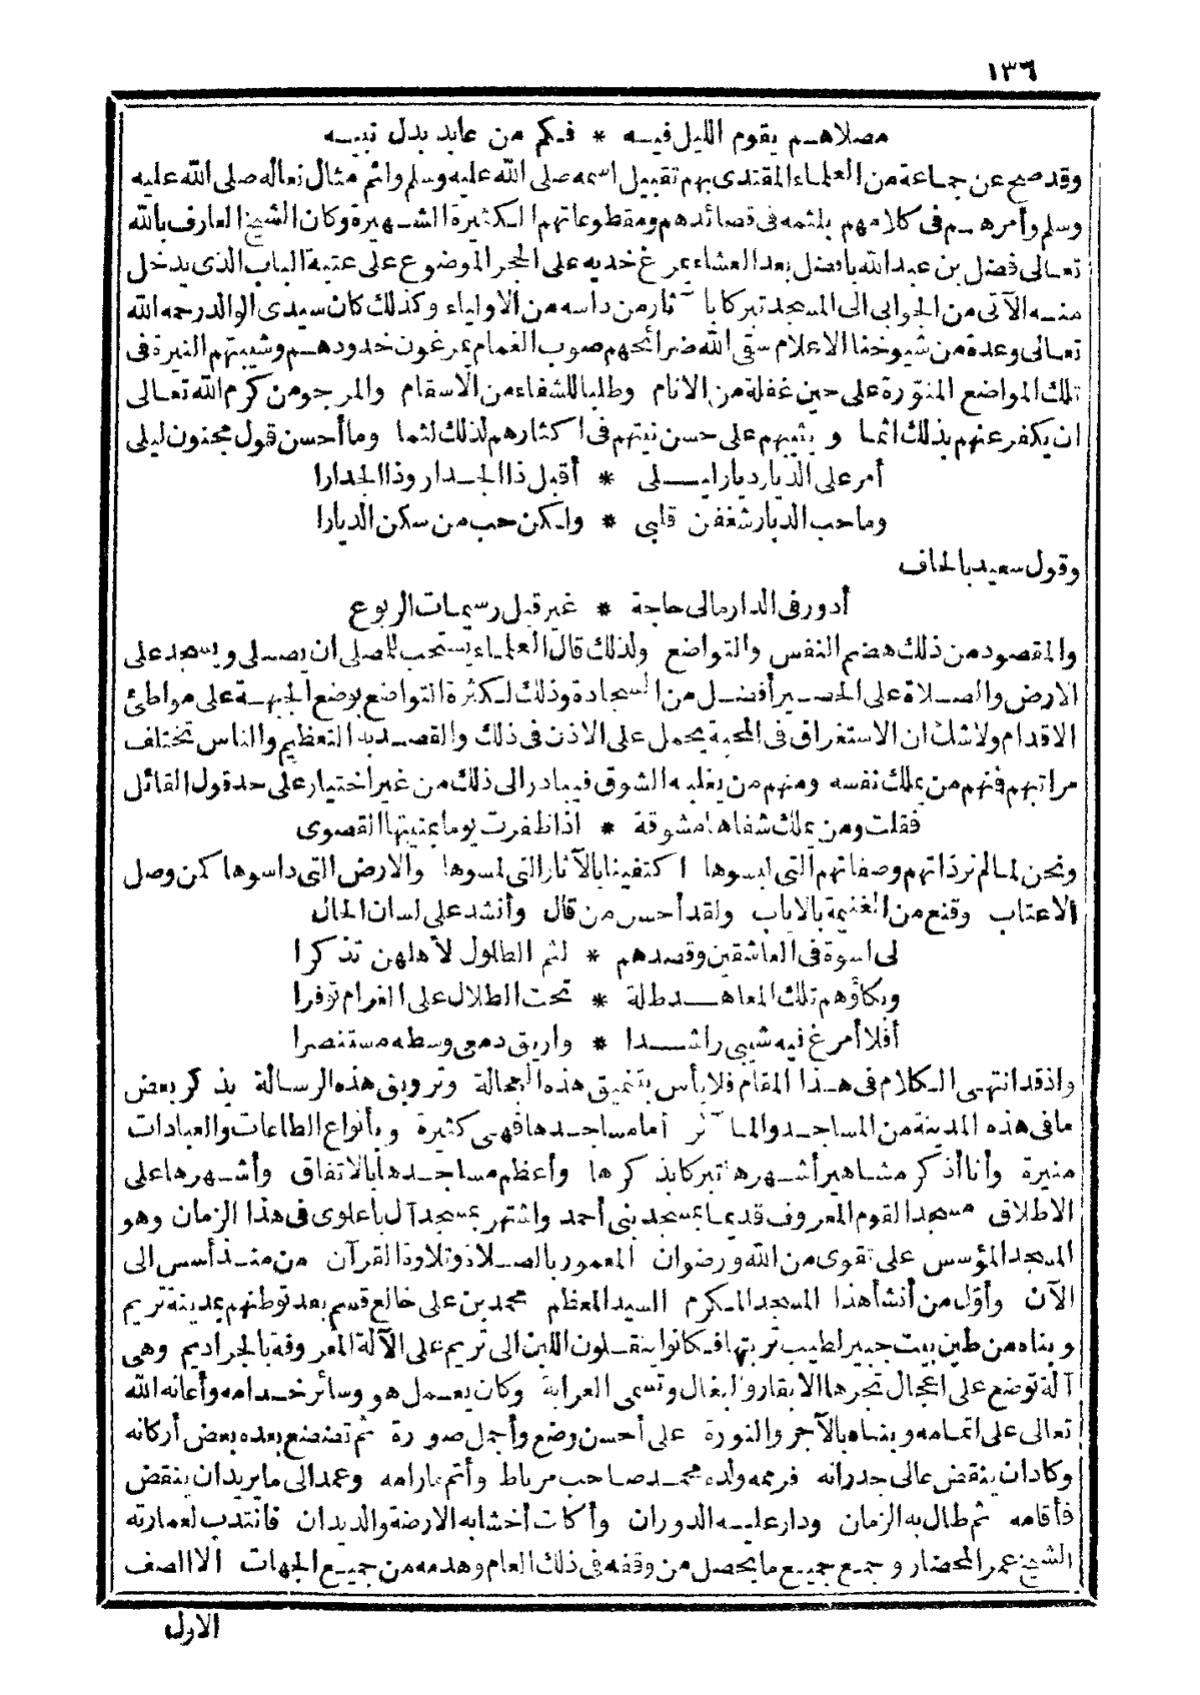 ١٣٦
مصلاهم يقوم الليل فيه * فكم من عابد بدل نبيه
وقد صح عن جماعة من العلماء المقتدى بهم تقبيل اسمه صلى الله عليه وسلم واثم مثال نعاله صلى الله عليه
وسلم وأمرهم فى كلامهم بلثمه فى قصائدهم ومقطوعاتهم الكثيرة الشهيرة وكان الشيخ العارف بالله
تعالى فضل بن عبد الله بافضل بعد العشاء يمرغ خديه على الحجر الموضوع على عتبة الباب الذى يدخل
منه الآتى من الجوابى الى المسجد تبركا بآثار من داسه من الاولياء وكذلك كان سيدى الوالد رحمه الله
تعالى وعدة من شيوخنا الاعلام سقى الله ضرائحهم صوب الغمام يمرغون خدودهم وشيبتهم النيرة فى
تلك المواضع المنورة على حين غفلة من الانام وطلبا للشفاء من الاسقام والمرجو من كرم الله تعالى
ان يكفر عنهم بذلك اثما و يثيبهم على حسن نيتهم فى اكثارهم لذلك لثما وما أحسن قول مجنون ليلى
أمر على الديار ديار ليلى * أقبل ذا الجدار وذا الجدارا
وما حب الديار شغفن قلبى * ولكن حب من سكن الديارا
وقول سعيد بالحاف
أدور فى الدار مالى حاجة * غير قبل رسيمات الربوع
والمقصود من ذلك هضم النفس والتواضع ولذلك قال العلماء يستحب للمصلى ان يصلى ويسجد على
الارض والصلاة على الحصير أفضل من السجادة وذلك لكثرة التواضع بوضع الجبهة على مواطئ
الاقدام ولا شك ان الاستغراق فى المحبة يحمل على الاذن فى ذلك والقصد به التعظيم والناس تختلف
مراتبهم فنهم من يملك نفسه ومنهم من يغلبه الشوق فيبادر الى ذلك من غير اختيار على حد قول القائل
فقلت ومن يملك شفاها مشوقة * اذا ظفرت يوما بمنيتها القصوى
ونحن لما لم نر ذاتهم وصفاتهم التى لبسوها اكتفينا بالآثار التى لمسوها والارض التى داسوها كمن وصل
الاعتاب وقنع من الغنيمة بالاياب ولقد أحسن من قال وأنشد على لسان الحال
لى اسوة فى العاشقين وقصدهم * لثم الطلول لاهلهن تذكرا
وبكاؤهم تلك المعاهد طلة * تحت الطلال على الغرام توفرا
أفلا أمرغ فيه شيبى راشدا * واريق دمعى وسطه مستنصرا
واذ قد انتهى الكلام فى هذا المقام فلا بأس بتنميق هذه العجالة وترويق هذه الرسالة بذكر بعض
ما فى هذه المدينة من المساجد والمآثر أما مساجدها فهى كثيرة وبأنواع الطاعات والعبادات
منيرة وأنا أذكر مشاهير أشهرها تبركا بذكرها وأعظم مساجدها بالاتفاق وأشهرها على
الاطلاق مسجد القوم المعروف قديما بمسجد بنى أحمد واشتهر بمسجد آل باعلوى فى هذا الزمان وهو
المسجد المؤسس على تقوى من الله ورضوان المعمور بالصلاة وتلاوة القرآن من منذ أسس الى
الآن وأول من أنشأ هذا المسجد المكرم السيد المعظم محمد بن على خالع قسم بعد توطنهم بمدينة تريم
وبناه من طين بيت جبير لطيب تربتها فكانوا ينقلون اللبن الى تريم على الآلة المعروفة بالجراديم وهى
آلة توضع على اعجال تجرها الابقار والبغال وتسمى العرابة وكان يعمل هو وسائر خدامه وأعانه الله
تعالى على اتمامه وبناه بالآجر والنورة على أحسن وضع وأجمل صورة ثم تضعضع بعده بعض أركانه
وكاد ان ينقض عالى جدرانه فرممه ولده محمد صاحب مرباط وأتم مارامه وعمد الى ما يريد ان ينقض
فأقامه ثم طال به الزمان ودار عليه الدوران وأكلت أخشابه الارضة والديدان فانتدب لعمارته
الشيخ عمر المحضار وجمع جميع ما يحصل من وقفه فى ذلك العام وهدمه من جميع الجهات الا الصف
الاول